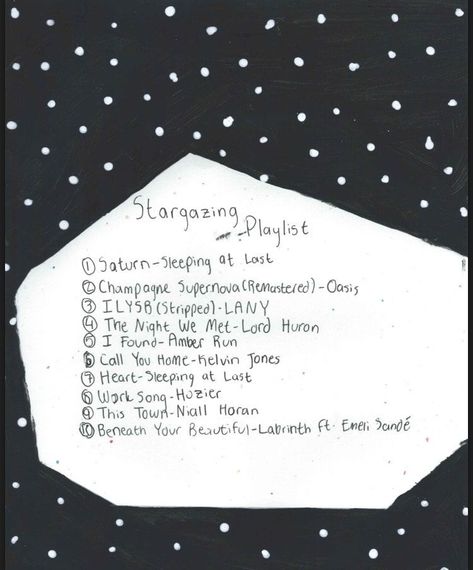 Stargazing
Playlist
① Saturn-Sleeping at Last
② Champagne Supernova(Remastered)-Oasis
③ ILYSB(Stripped)-LANY
④ The Night We Met-Lord Huron
⑤ I Found-Amber Run
⑥ Call You Home-Kelvin Jones
⑦ Heart-Sleeping at Last
⑧ Work Song-Hozier
⑨ This Town-Niall Horan
⑩ Beneath Your Beautiful-Labrinth ft. Emeli Sandé